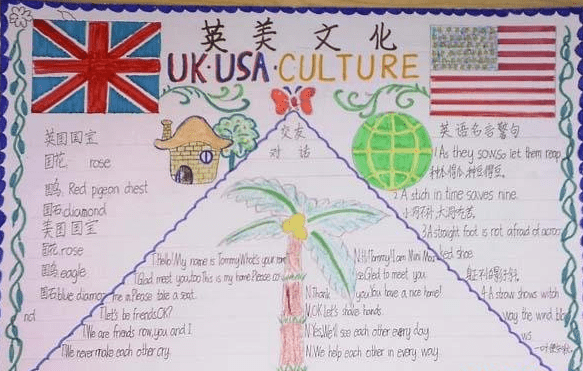 英美文化
UK·USA·CULTURE
英国国宝
国花 rose
国鸟 Red pigeon chest
国石 diamond
美国国宝
国花 rose
国鸟 eagle
国石 blue
交友
对话
T.Hello! My name is Tommy What's your
T.Glad meet you, too This is my home. Please
me in. Please take a seat.
T.Let's be friends, OK?
T.We are friends now, you and I
T.We never make each other cry.
N.Hi! Tommy I am Mini
Glad to meet you.
N.Thank you. You have a nice home!
N.OK. Let's shake hands.
N.Yes, We'll see each other every day.
N.We help each other in every way.
英语名言警句
1 As they sow, so let them reap
2 A stich in time saves nine
小洞不补,大洞吃苦.
3 A straight foot is not afraid of
ked shoe
4 A straw shows witch
way the wind
ws